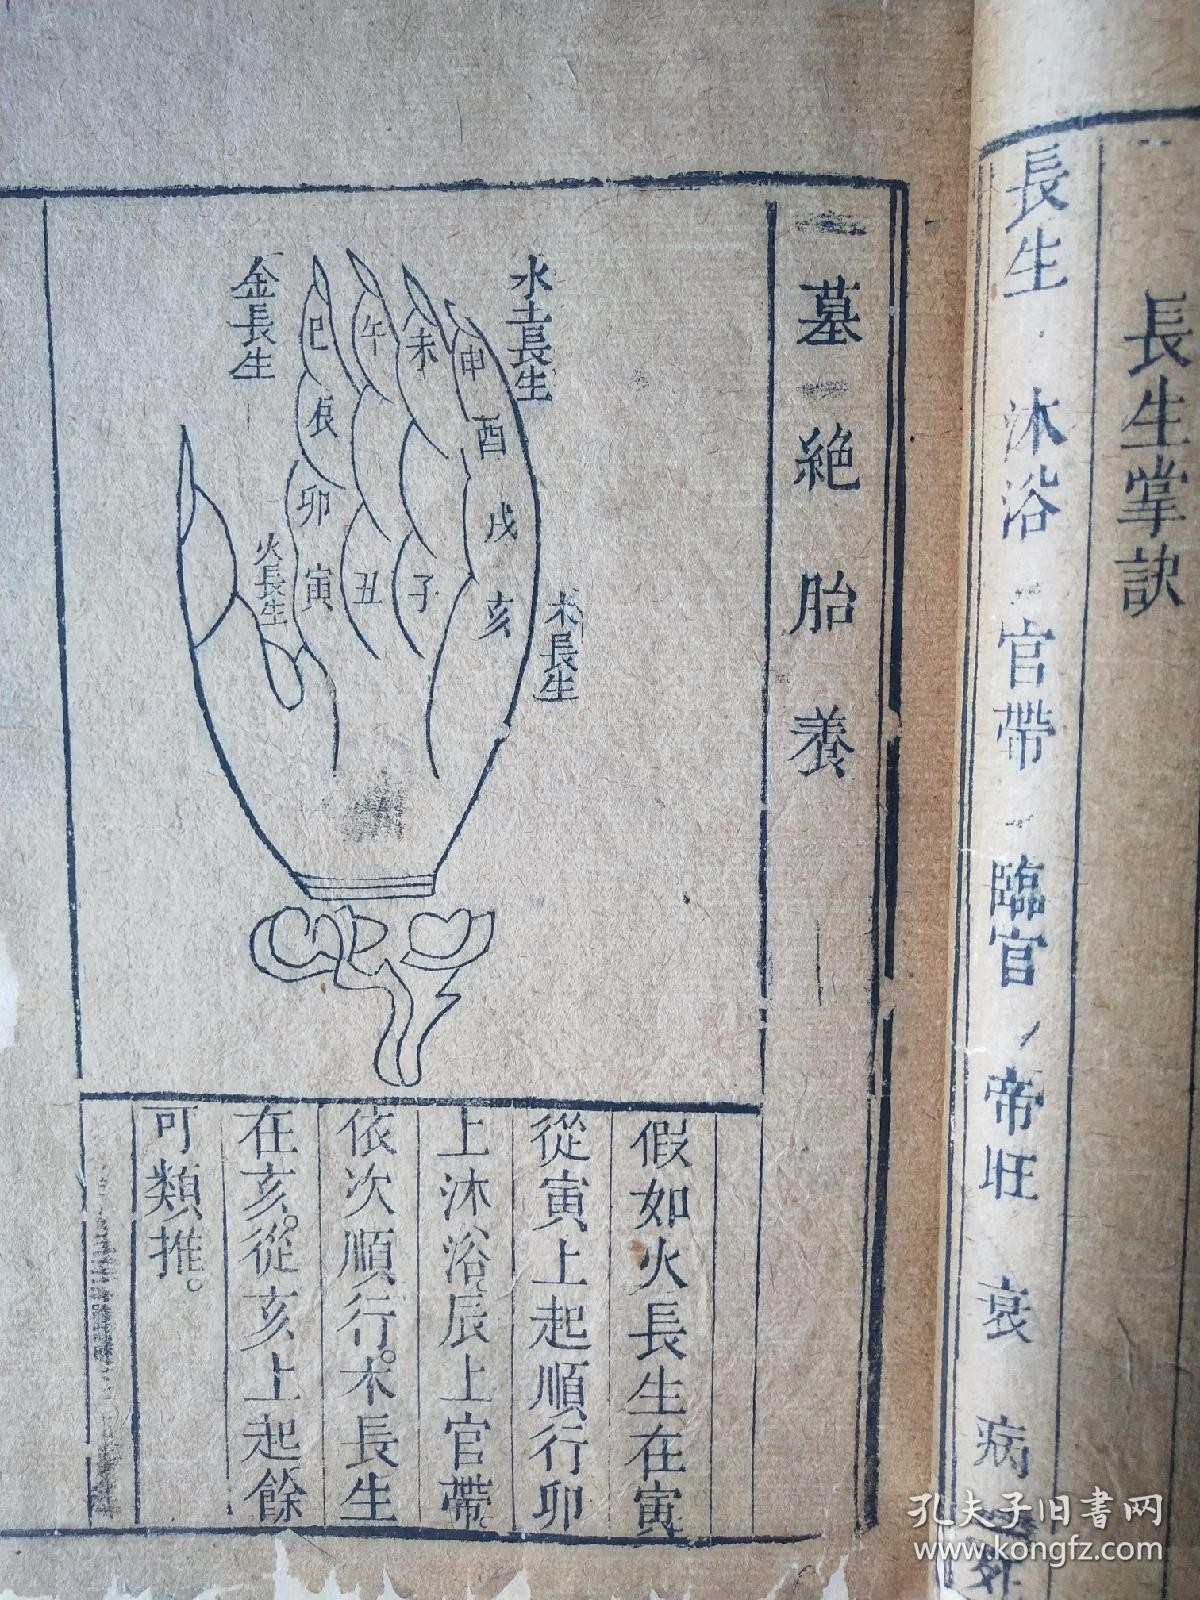 長生掌訣
長生 沐浴 官帶 臨官 帝旺 衰 病 死
墓 絶 胎 養
水土長生
金長生
火長生
木長生
巳
午
未
申
辰
酉
卯
戌
寅
丑
子
亥
假如火長生在寅
從寅上起順行卯
上沐浴。辰上官帶。
依次順行。木長生
在亥。從亥上起餘
可類推。
孔夫子旧书网
www.kongfz.com